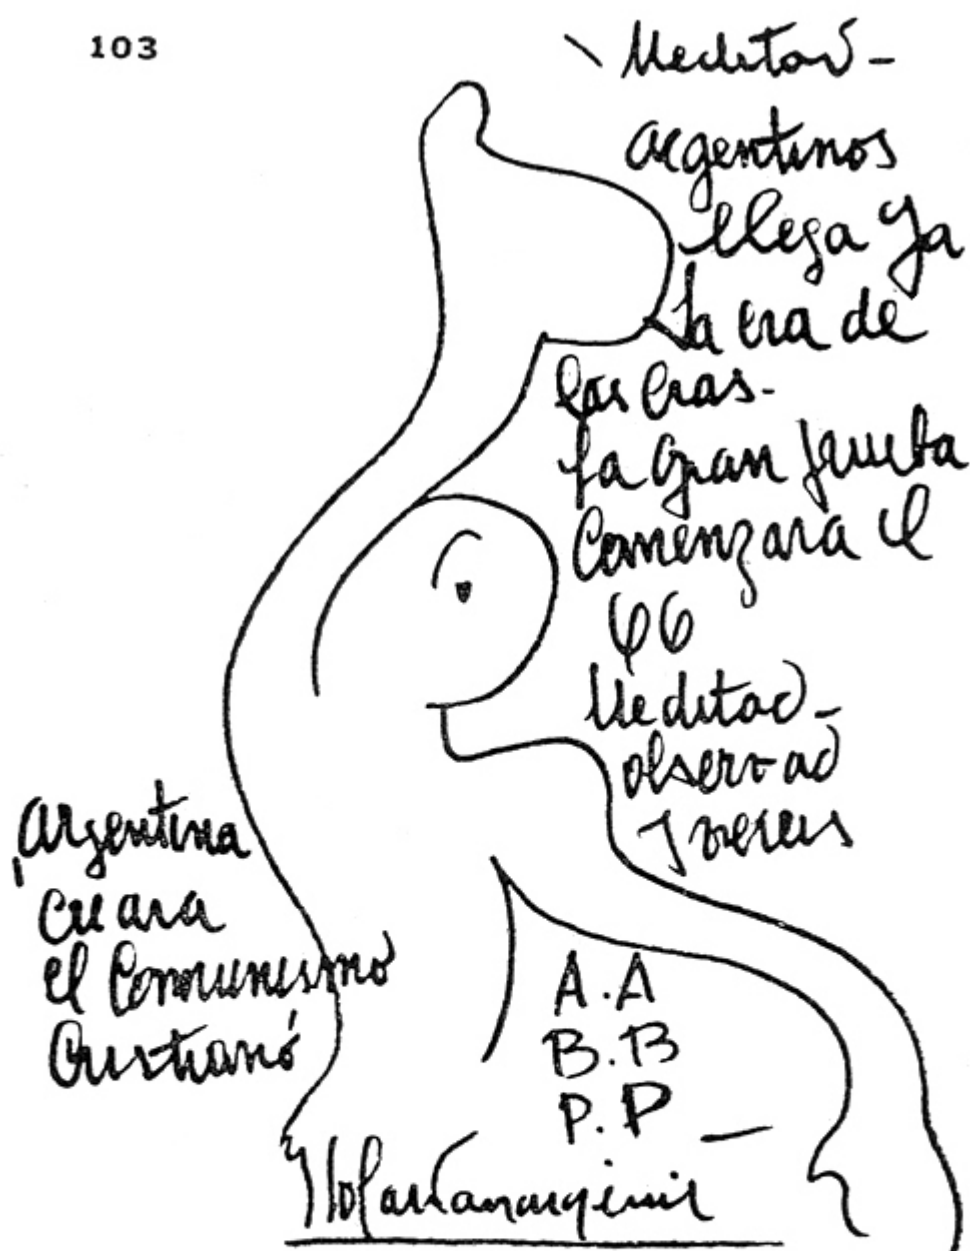 103
Meditad-
argentinos
llega ya
la era de
las eras-
la gran prueba
Comenzara el
66
Meditad-
observad
y vereis
Argentina
Creara
el Comunismo
Cristiano
A.A
B.B
P.P